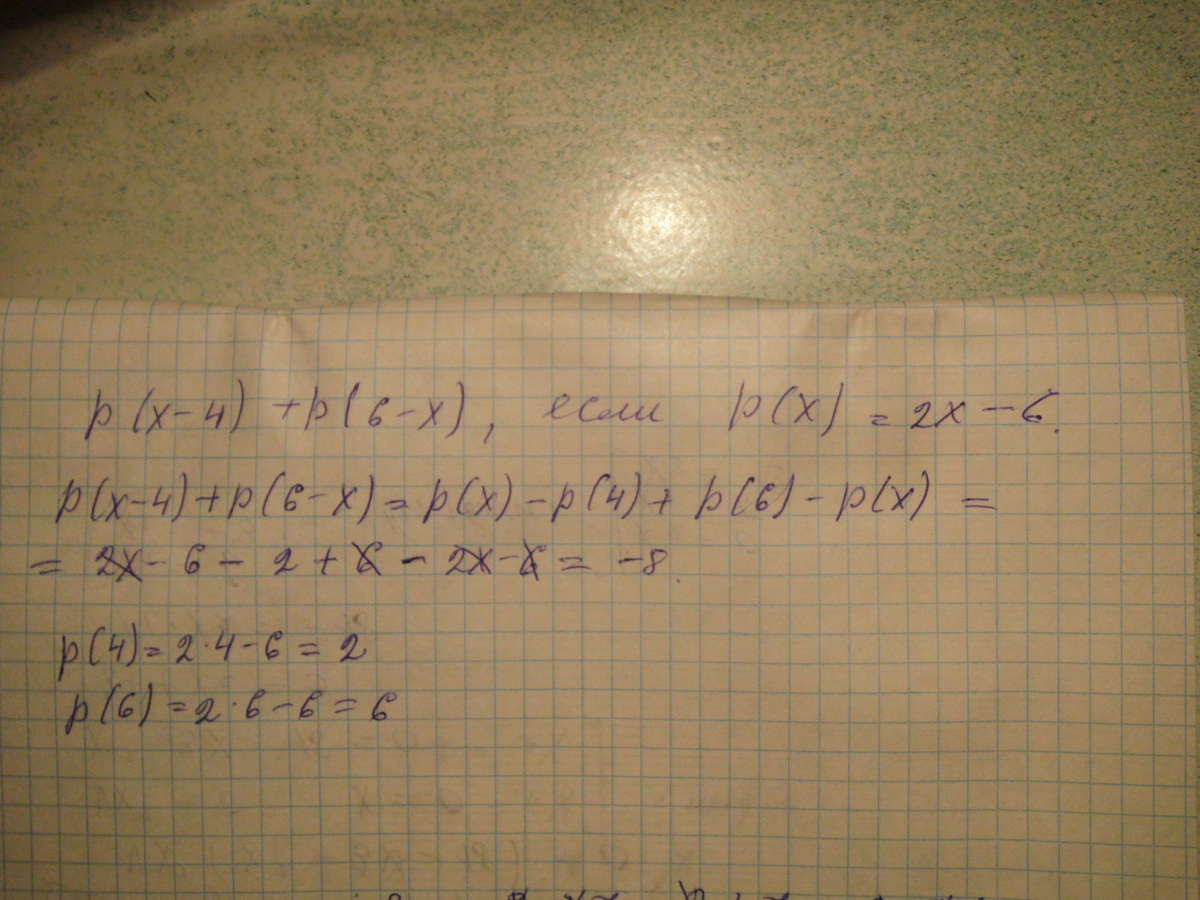 p(x-4) + p(6-x), если p(x) = 2x - 6.
p(x-4) + p(6-x) = p(x) - p(4) + p(6) - p(x) =
= 2x - 6 - 2 + 6 - 2x - 6 = -8.
p(4) = 2·4 - 6 = 2
p(6) = 2·6 - 6 = 6